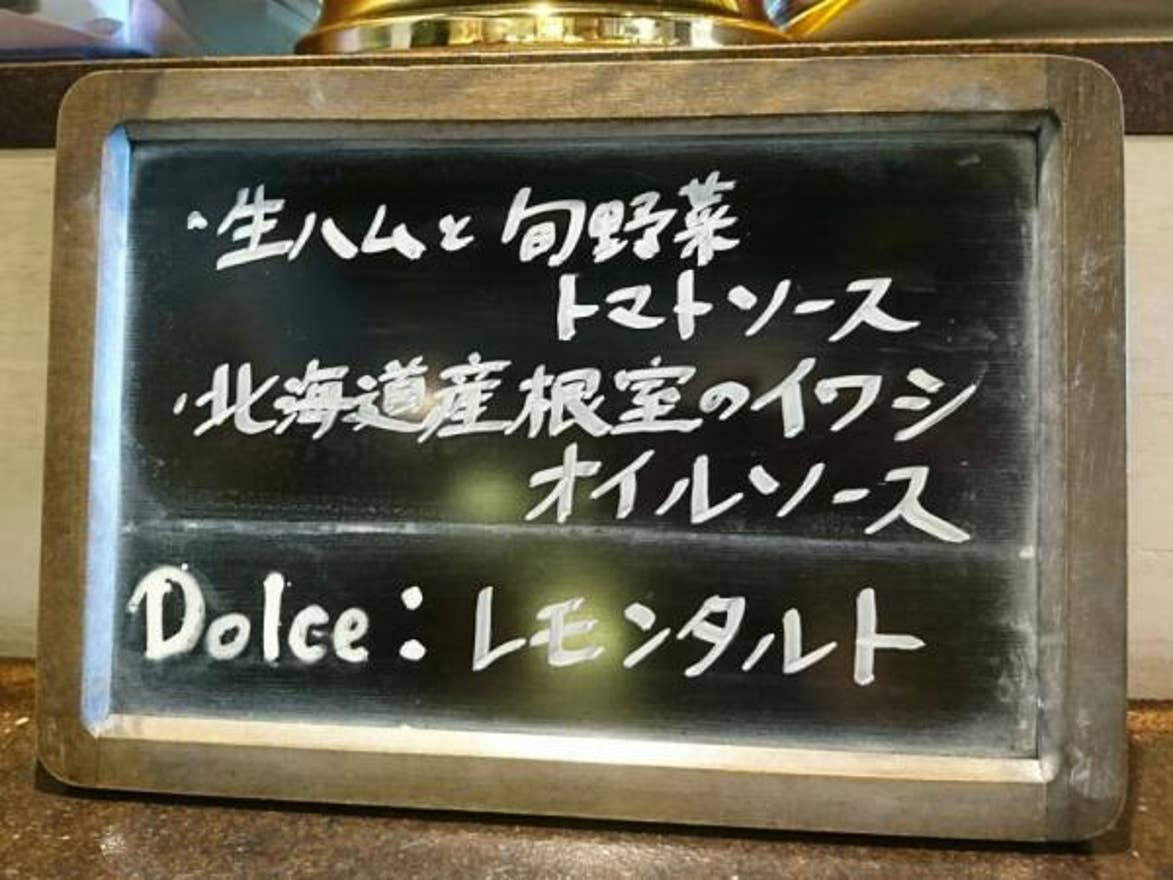 ・生ハムと旬野菜
トマトソース
・北海道産根室のイワシ
オイルソース
Dolce：レモンタルト